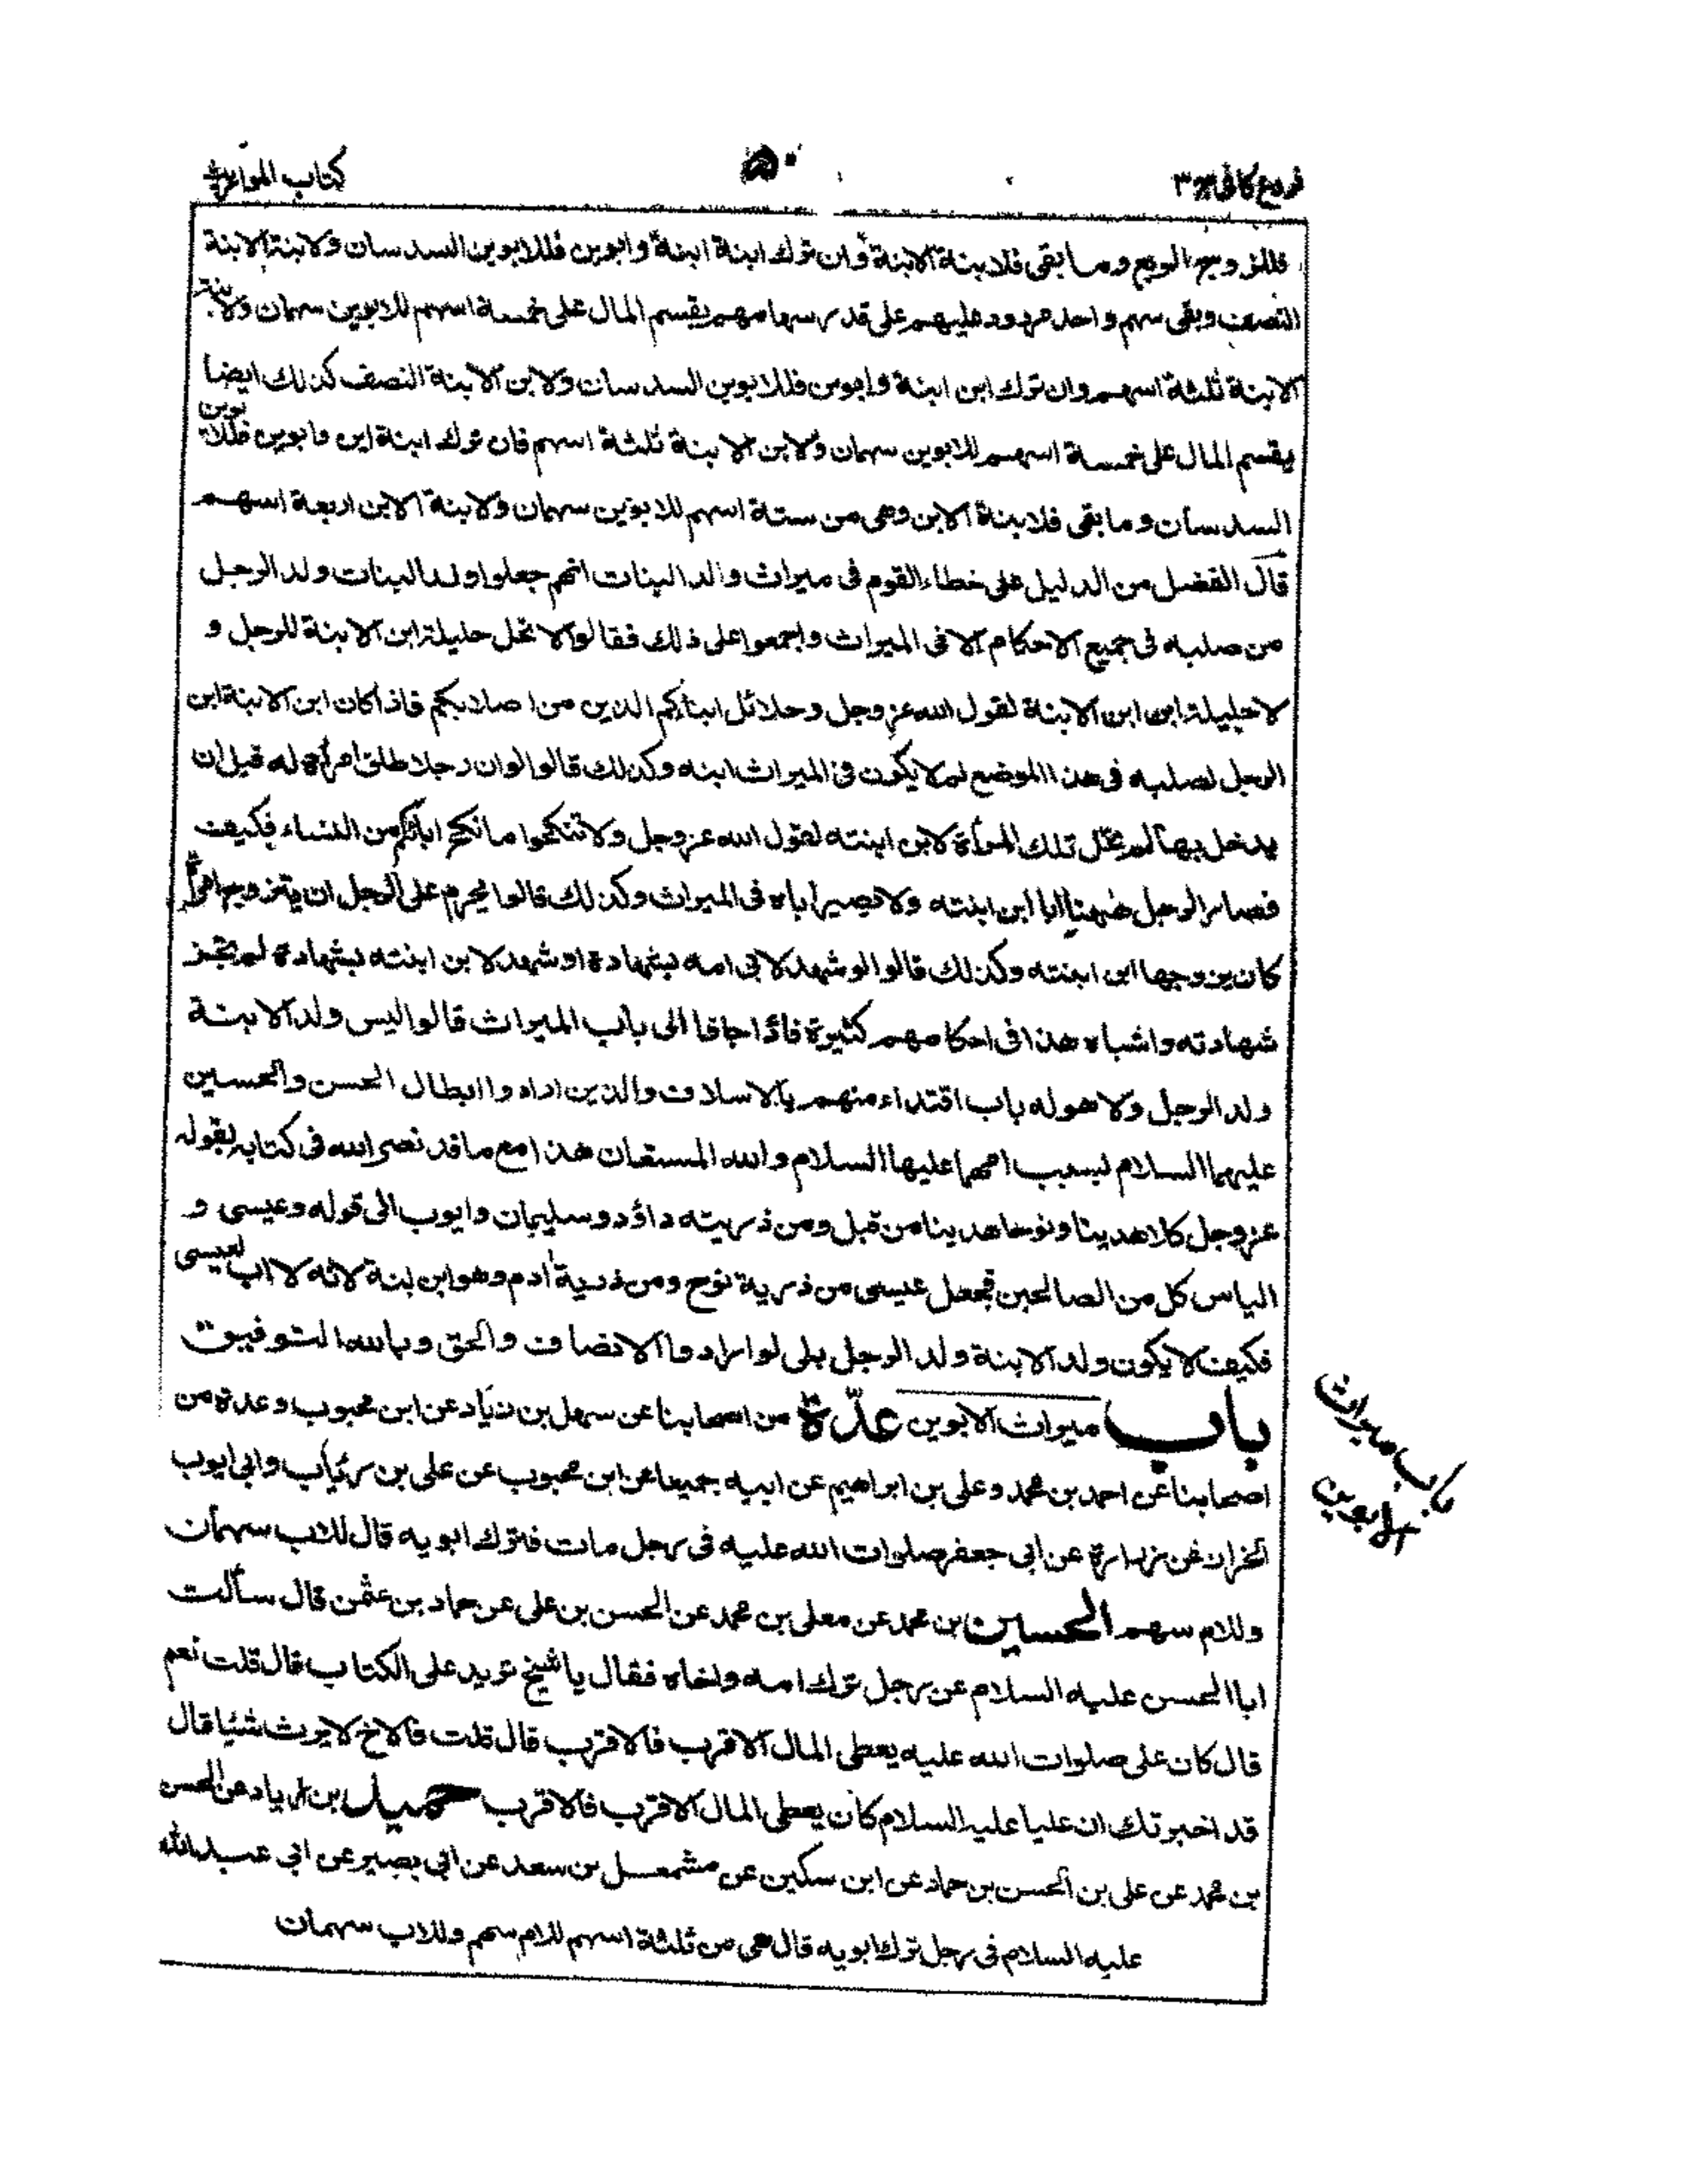 فروع كافى ج ٣
٥٠
كتاب المواريث
فللزوج الربع وما بقى فلابنة الابنة وان ترك ابنة ابنة وابوين فللابوين السدسان ولابنة الابنة
النصف وبقى سهم واحد مردود عليهم على قدر سهامهم يقسم المال على خمسة اسهم للابوين سهمان ولابنة
الابنة ثلثة اسهم وان ترك ابن ابنة وابوين فللابوين السدسان ولابن الابنة النصف كذلك ايضا
يقسم المال على خمسة اسهم للابوين سهمان ولابن الابنة ثلثة اسهم فان ترك ابنة ابن وابوين فللابوين
السدسان وما بقى فلابنة الابن وهى من ستة اسهم للابوين سهمان ولابنة الابن اربعة اسهم
قال الفضل من الدليل على خطاء القوم فى ميراث والد البنات انهم جعلوا ولد البنات ولد الرجل
من صلبه فى جميع الاحكام الا فى الميراث واجمعوا على ذلك فقالوا لا تحل حليلة ابن الابنة للرجل و
لا حليلة ابن ابن الابنة لقول الله عز وجل وحلائل ابنائكم الذين من اصلابكم فاذا كان ابن الابنة ابن
الرجل لصلبه فى هذا الموضع لم لا يكون فى الميراث ابنه وكذلك قالوا لو ان رجلا طلق امرأة له قبل ان
يدخل بها لم تحل تلك المرأة لابن ابنته لقول الله عز وجل ولا تنكحوا ما نكح اباؤكم من النساء فكيف
فصار الرجل ههنا ابا ابن ابنته ولا يصير اباه فى الميراث وكذلك قالوا يحرم على الرجل ان يتزوج بامرأة
كان يزوجها ابن ابنته وكذلك قالوا لو شهد لابى امه بشهادة او شهد لابن ابنته بشهادة لم تجز
شهادته واشباه هذا فى احكامهم كثيرة فاذا جاؤا الى باب الميراث قالوا ليس ولد الابنة
ولد الرجل ولا هو له باب اقتداء منهم بالاسلاف والذين ارادوا ابطال الحسن والحسين
عليهما السلام بسبب امهما عليها السلام والله المستعان هذا مع ما قد نص الله فى كتابه بقوله
عز وجل كلا هدينا ونوحا هدينا من قبل ومن ذريته داؤد وسليمان وايوب الى قوله وعيسى و
الياس كل من الصالحين فجعل عيسى من ذرية نوح ومن ذرية أدم وهو ابن بنة لانه لا اب لعيسى
فكيف لا يكون ولد الابنة ولد الرجل بلى لو ارادوا الانصاف والحق وبالله التوفيق
باب ميراث الابوين عدّة من اصحابنا عن سهل بن زياد عن ابن محبوب وعدة من
اصحابنا عن احمد بن محمد وعلى بن ابراهيم عن ابيه جميعا عن ابن محبوب عن على بن رئاب وابى ايوب
الخزاز عن زرارة عن ابى جعفر صلوات الله عليه فى رجل مات فترك ابويه قال للاب سهمان
وللام سهم الحسين بن محمد عن معلى بن محمد عن الحسن بن على عن حماد بن عثمن قال سألت
ابا الحسن عليه السلام عن رجل ترك امه واخاه فقال يا شيخ تريد على الكتاب قال قلت نعم
قال كان على صلوات الله عليه يعطى المال الاقرب فالاقرب قال قلت فالاخ لا يرث شيئا قال
قد اخبرتك ان عليا عليه السلام كان يعطى المال الاقرب فالاقرب حميد بن زياد عن الحسن
بن محمد عن على بن الحسن بن حماد عن ابن سكين عن مشمعل بن سعد عن ابى بصير عن ابى عبدالله
عليه السلام فى رجل ترك ابويه قال هى من ثلثة اسهم للام سهم وللاب سهمان
باب ميراث
الابوين